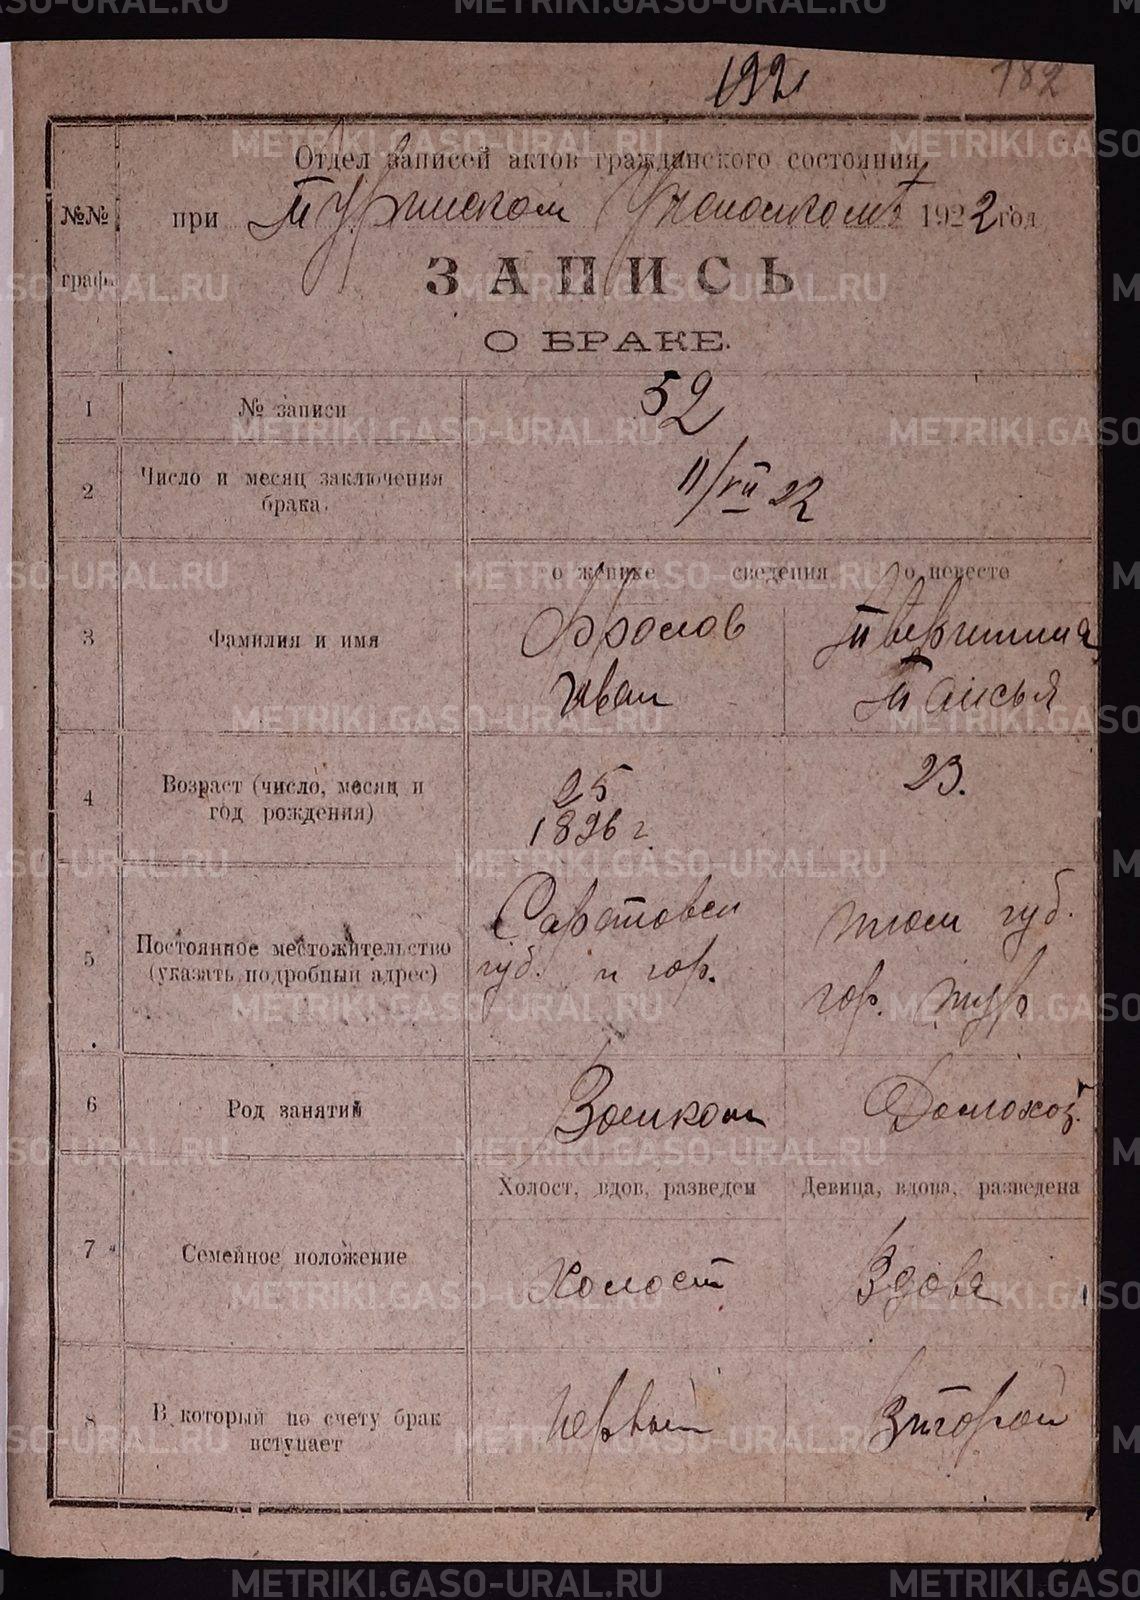 192
182
Отдел записей актов гражданского состояния
№№ граф.
при Туринском Уисполкоме 1922 год
ЗАПИСЬ
О БРАКЕ.
1 № записи 52
2 Число и месяц заключения брака. 11/VII 22
о женихе сведения о невесте
3 Фамилия и имя
Фролов
Иван
Таисья
4 Возраст (число, месяц и год рождения)
25
1896 г.
23.
5 Постоянное местожительство (указать подробный адрес)
Саратовск
губ. и гор.
Тюм губ.
гор. Тур
6 Род занятий
Военком
Домохоз.
Холост, вдов, разведен
Девица, вдова, разведена
7 Семейное положение
Холост
Вдова
8 В который по счету брак вступает
Первый
Второй
METRIKI.GASO-URAL.RU